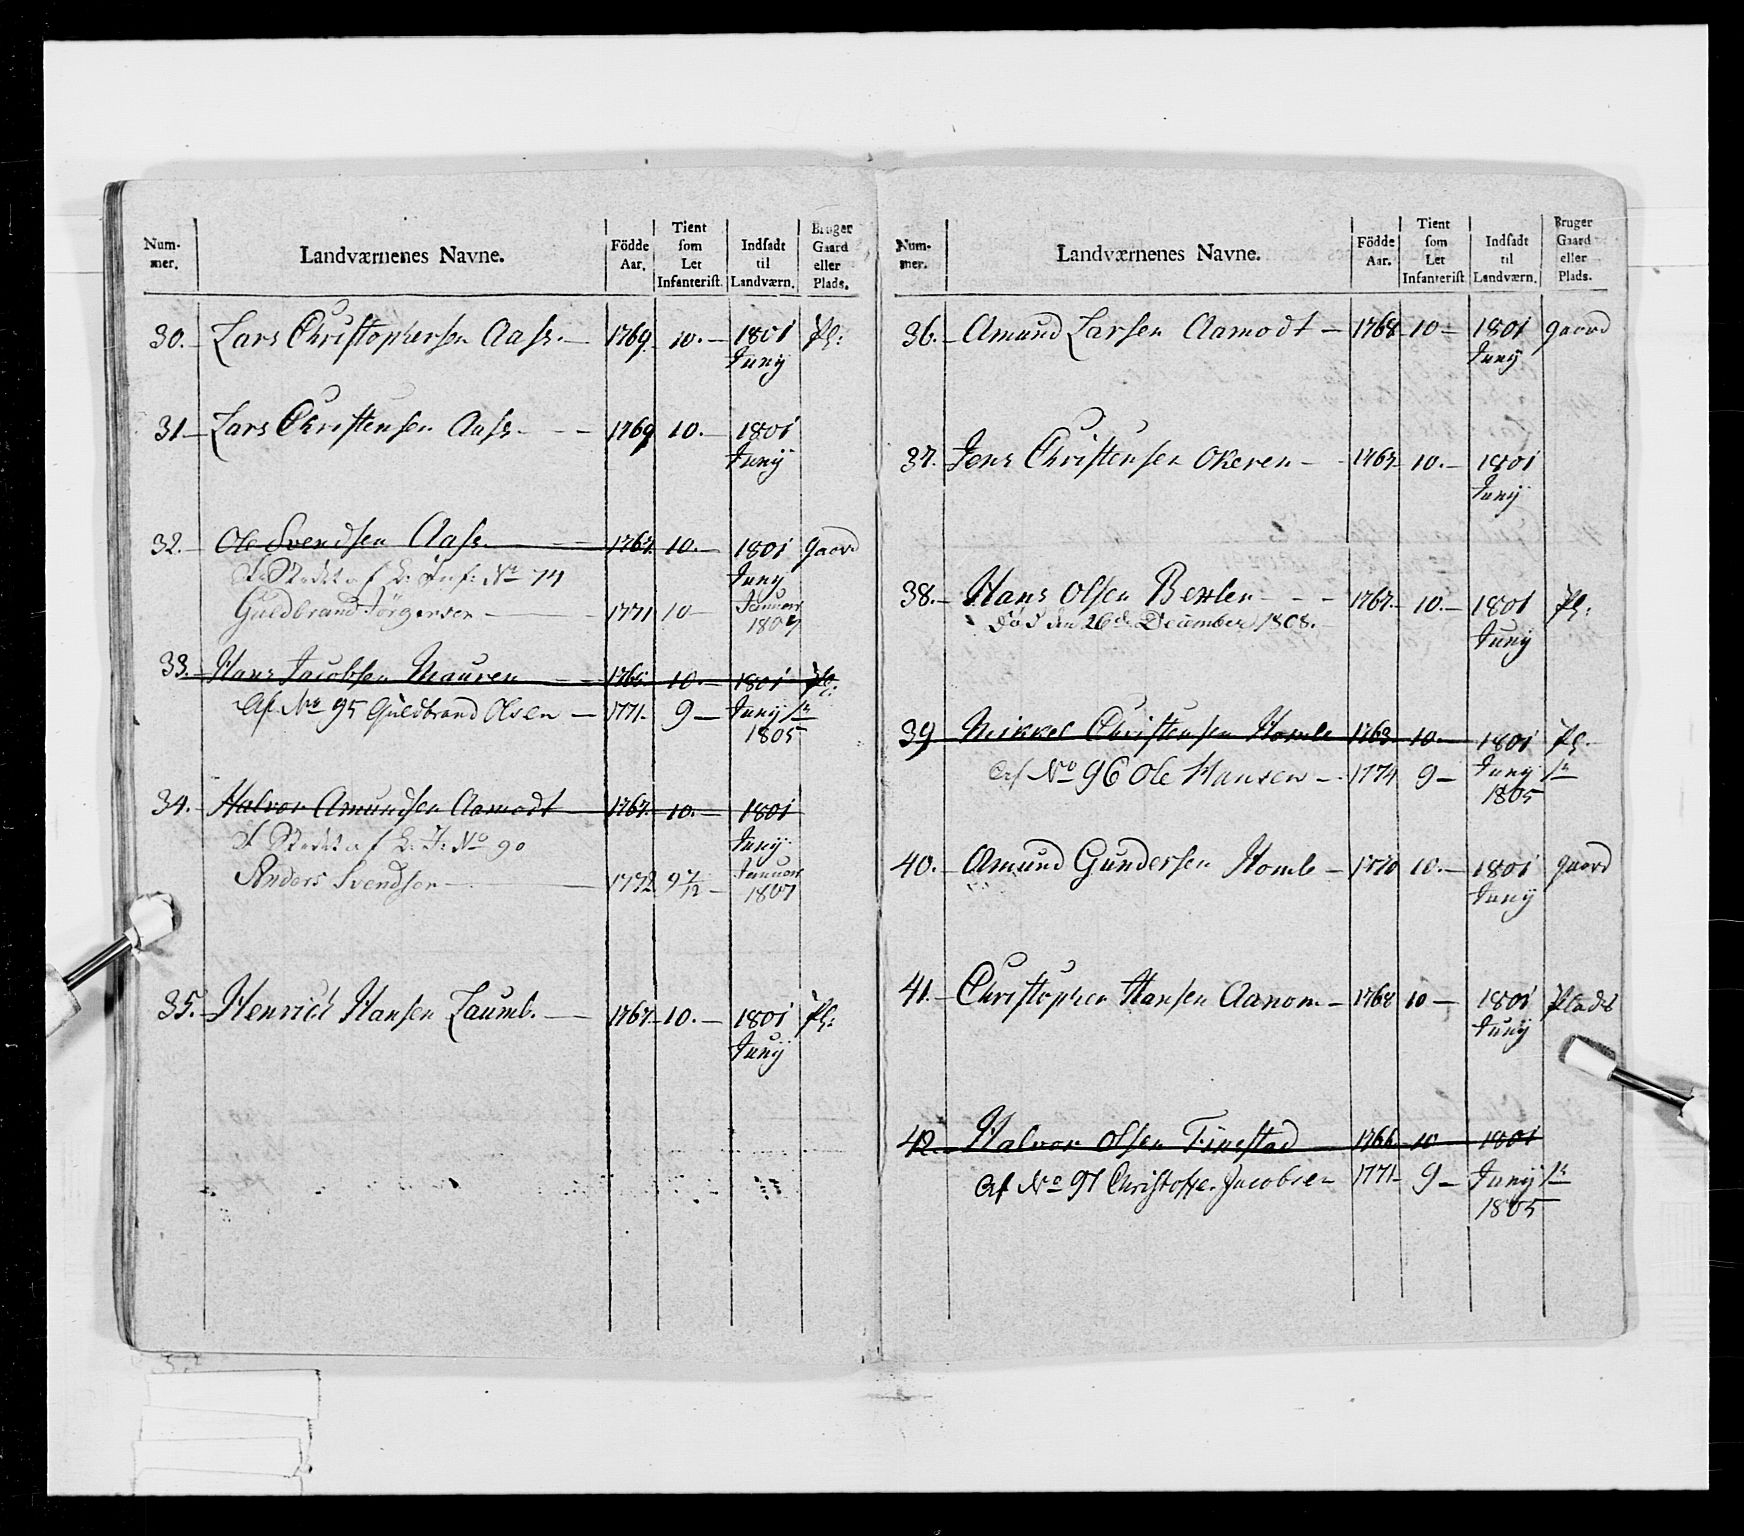 Num- Landværnenes Navne. Födde Tient Indsadt Bruger
mer. Aar. som til Gaard
Let Landværn. eller
Infanterist. Plads.
30. Lars Christophersen Aass 1769 10. 1801 Pl:
Junÿ
31 Lars Christensen Aass 1769 10. 1801
Junÿ
32. Ole Svendsen Aass 1767 10. 1801 gaard
I Stedet af L: Inf: No 74 Juny
Guldbrand Jörgensen 1771 10 Januar
1807
33. Hans Jacobsen Mauren 10. 1801 Pl:
Af No 95 Guldbrand Olsen 1771. 9 Junÿ
1805
34. Halvor Amundsen Aamodt 1767. 10. 1801
I Stedet af L. I: No 90 Junÿ
Anders Svendsen 1772 9 7/12 Januar
1807
35. Henrich Hansen Laumb. 1767 10. 1801 Pl:
Junÿ
Num- Landværnenes Navne. Födde Tient Indsadt Bruger
mer. Aar. som til Gaard
Let Landværn. eller
Infanterist Plads.
36. Amund Larsen Aamodt 1768 10 1801 gaard
Junÿ
37. Jens Christensen Okeren 10. 1801
Junÿ
38. Hans Olsen 1767. 10. 1801 Pl:
död den 26de December 1808. Junÿ
39 Mikkel Christensen Homle 1763 10. 1801 Pl.
Af No 96 Ole Hansen 1774 9 Junÿ
1805
40. Amund Gundersen Homle 1770 10. 1801 gaard
Junÿ
41. Christopher Hansen Aanom 1768 10 1801 Plads
Junÿ
42. Halvor Olsen Finstad 1766 10 1801
Af No 97 Christoffe. Jacobsen 1771 9 Junÿ
1805